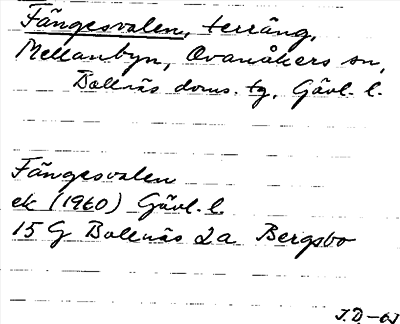 Fängesvalen, terräng,
Mellanbyn, Ovanåkers sn,
Bollnäs doms. tg, Gävl. l.
Fängesvalen
ek (1960) Gävl. l.
15 G Bollnäs 2a Bergsbo